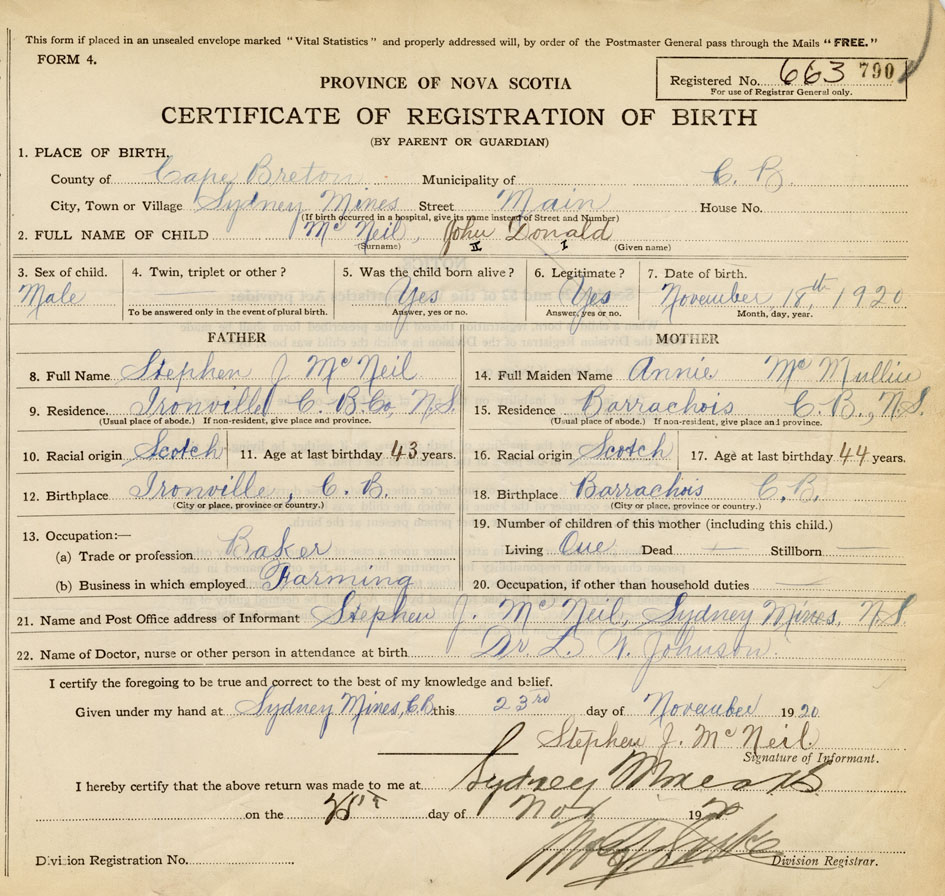 This form if placed in an unsealed envelope marked "Vital Statistics" and properly addressed will, by order of the Postmaster General pass through the Mails "FREE."
FORM 4.
Registered No. 663 790
For use of Registrar General only.
PROVINCE OF NOVA SCOTIA
CERTIFICATE OF REGISTRATION OF BIRTH
(BY PARENT OR GUARDIAN)
1. PLACE OF BIRTH.
County of Cape Breton Municipality of C. B.
City, Town or Village Sydney Mines Street Main House No.
(If birth occurred in a hospital, give its name instead of Street and Number)
2. FULL NAME OF CHILD McNeil, John Donald
(Surname) II I (Given name)
3. Sex of child. 4. Twin, triplet or other? 5. Was the child born alive? 6. Legitimate? 7. Date of birth.
Male Yes Yes November 18th, 1920
To be answered only in the event of plural birth. Answer, yes or no. Answer, yes or no. Month, day, year.
FATHER MOTHER
8. Full Name Stephen J McNeil 14. Full Maiden Name Annie McMullin
9. Residence. Ironville C. B. Co, N.S. 15. Residence Barrachois C.B., N.S.
(Usual place of abode.) If non-resident, give place and province. (Usual place of abode.) If non-resident, give place and province.
10. Racial origin Scotch 11. Age at last birthday 43 years. 16. Racial origin Scotch 17. Age at last birthday 44 years.
12. Birthplace Ironville, C. B. 18. Birthplace Barrachois C.B.
(City or place, province or country.) (City or place, province or country.)
13. Occupation:— 19. Number of children of this mother (including this child.)
(a) Trade or profession Baker Living One Dead — Stillborn —
(b) Business in which employed Farming 20. Occupation, if other than household duties —
21. Name and Post Office address of Informant Stephen J. McNeil, Sydney Mines, N.S.
22. Name of Doctor, nurse or other person in attendance at birth Dr. L. W. Johnson.
I certify the foregoing to be true and correct to the best of my knowledge and belief.
Given under my hand at Sydney Mines, C.B. this 23rd day of November 1920
Stephen J. McNeil.
Signature of Informant.
I hereby certify that the above return was made to me at Sydney Mines CB
on the day of Nov 1920
Division Registration No. Division Registrar.